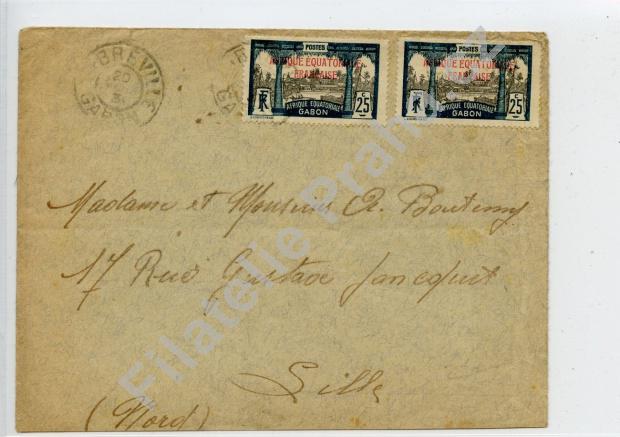 BREVILLE
20
GABON
POSTES
AFRIQUE ÉQUATORIALE
FRANÇAISE
RF
25
AFRIQUE EQUATORIALE
GABON
POSTES
AFRIQUE ÉQUATORIALE
FRANÇAISE
RF
25
AFRIQUE EQUATORIALE
GABON
Madame et Monsieur A. Boutemy
17 Rue Gustave Jancquet
Lille
(Nord)
Filatelie Praha.cz